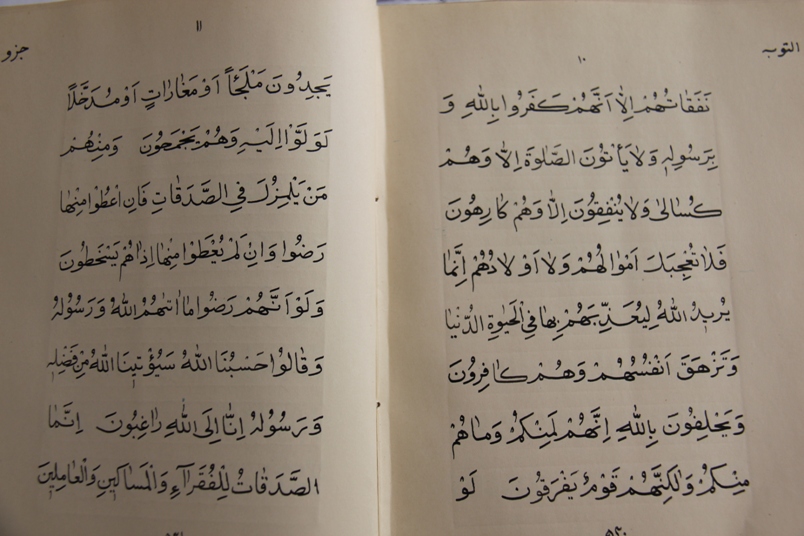 التوبه
١٠
نَفَقَاتُهُمْ اِلَّا اَنَّهُمْ كَفَرُوا بِاللّٰهِ وَ
بِرَسُولِهٖ وَلَا يَأْتُونَ الصَّلٰوةَ اِلَّا وَهُمْ
كُسَالٰى وَلَا يُنْفِقُونَ اِلَّا وَهُمْ كَارِهُونَ
فَلَا تُعْجِبْكَ اَمْوَالُهُمْ وَلَا اَوْلَادُهُمْ اِنَّمَا
يُرِيدُ اللّٰهُ لِيُعَذِّبَهُمْ بِهَا فِي الْحَيٰوةِ الدُّنْيَا
وَتَزْهَقَ اَنْفُسُهُمْ وَهُمْ كَافِرُونَ
وَيَحْلِفُونَ بِاللّٰهِ اِنَّهُمْ لَمِنْكُمْ وَمَا هُمْ
مِنْكُمْ وَلٰكِنَّهُمْ قَوْمٌ يَفْرَقُونَ لَوْ
١١
جزو
يَجِدُونَ مَلْجَأً اَوْ مَغَارَاتٍ اَوْ مُدَّخَلًا
لَوَلَّوْا اِلَيْهِ وَهُمْ يَجْمَحُونَ وَمِنْهُمْ
مَنْ يَلْمِزُكَ فِي الصَّدَقَاتِ فَاِنْ اُعْطُوا مِنْهَا
رَضُوا وَاِنْ لَمْ يُعْطَوْا مِنْهَا اِذَا هُمْ يَسْخَطُونَ
وَلَوْ اَنَّهُمْ رَضُوا مَا اٰتٰيهُمُ اللّٰهُ وَرَسُولُهُ
وَقَالُوا حَسْبُنَا اللّٰهُ سَيُؤْتِينَا اللّٰهُ مِنْ فَضْلِهٖ
وَرَسُولُهُ اِنَّا اِلَى اللّٰهِ رَاغِبُونَ اِنَّمَا
الصَّدَقَاتُ لِلْفُقَرَاۤءِ وَالْمَسَاكِينِ وَالْعَامِلِينَ